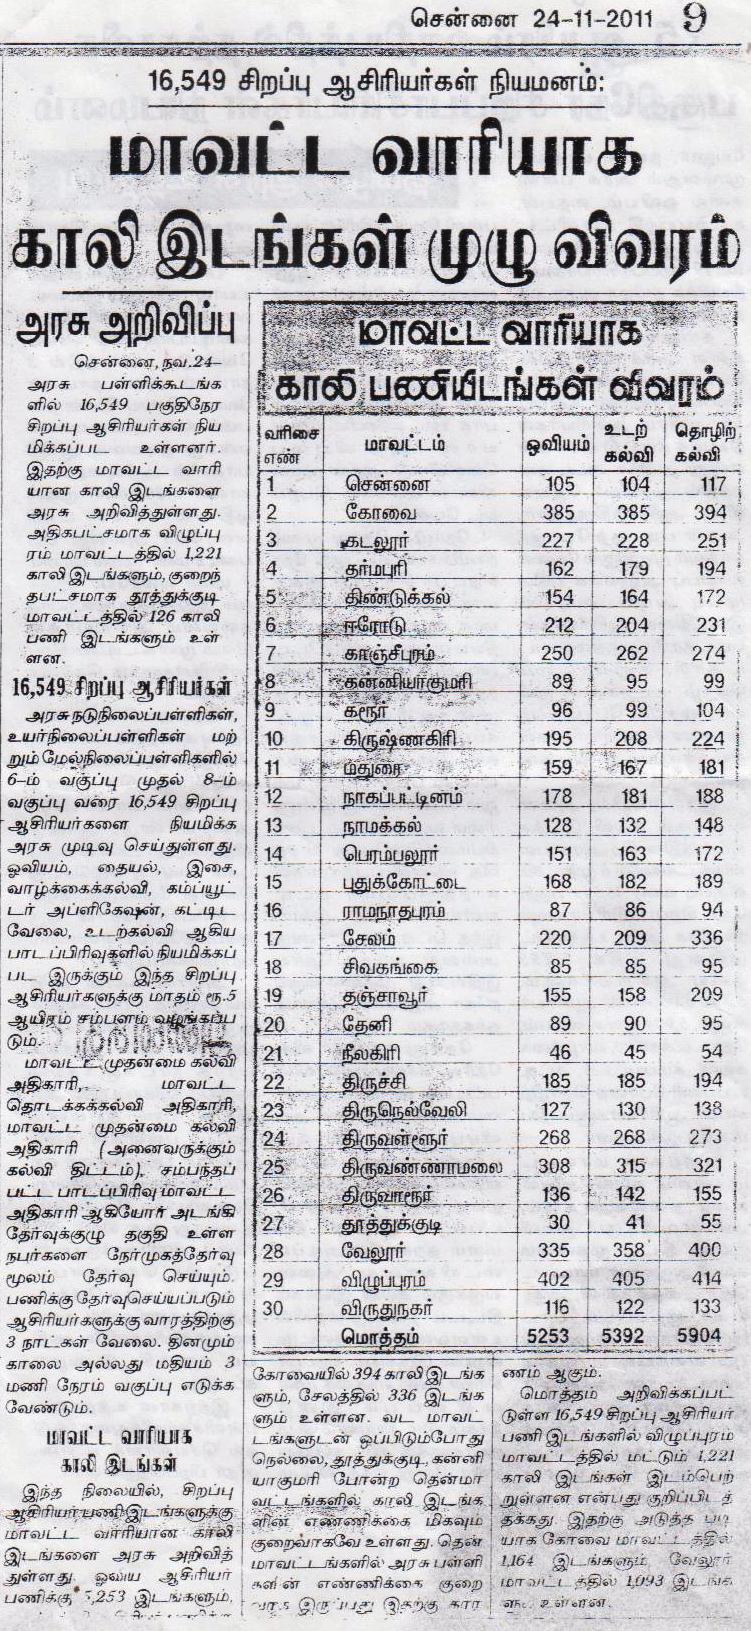 சென்னை 24-11-2011 9
16,549 சிறப்பு ஆசிரியர்கள் நியமனம்:
மாவட்ட வாரியாக
காலி இடங்கள் முழு விவரம்
அரசு அறிவிப்பு
சென்னை, நவ.24–
அரசு பள்ளிக்கூடங்க
ளில் 16,549 பகுதிநேர
சிறப்பு ஆசிரியர்கள் நிய
மிக்கப்பட உள்ளனர்.
இதற்கு மாவட்ட வாரி
யான காலி இடங்களை
அரசு அறிவித்துள்ளது.
அதிகபட்சமாக விழுப்பு
ரம் மாவட்டத்தில் 1,221
காலி இடங்களும், குறைந்
தபட்சமாக தூத்துக்குடி
மாவட்டத்தில் 126 காலி
பணி இடங்களும் உள்
ளன.
16,549 சிறப்பு ஆசிரியர்கள்
அரசு நடுநிலைப்பள்ளிகள்,
உயர்நிலைப்பள்ளிகள் மற்
றும் மேல்நிலைப்பள்ளிகளில்
6-ம் வகுப்பு முதல் 8-ம்
வகுப்பு வரை 16,549 சிறப்பு
ஆசிரியர்களை நியமிக்க
அரசு முடிவு செய்துள்ளது.
ஓவியம், தையல், இசை,
வாழ்க்கைக்கல்வி, கம்ப்யூட்
டர் அப்ளிகேஷன், கட்டிட
வேலை, உடற்கல்வி ஆகிய
பாடப்பிரிவுகளில் நியமிக்கப்
பட இருக்கும் இந்த சிறப்பு
ஆசிரியர்களுக்கு மாதம் ரூ.5
ஆயிரம் சம்பளம் வழங்கப்ப
டும்.
மாவட்ட முதன்மை கல்வி
அதிகாரி, மாவட்ட
தொடக்கக்கல்வி அதிகாரி,
மாவட்ட முதன்மை கல்வி
அதிகாரி (அனைவருக்கும்
கல்வி திட்டம்), சம்பந்தப்
பட்ட பாடப்பிரிவு மாவட்ட
அதிகாரி ஆகியோர் அடங்கி
தேர்வுக்குழு தகுதி உள்ள
நபர்களை நேர்முகத்தேர்வு
மூலம் தேர்வு செய்யும்.
பணிக்கு தேர்வுசெய்யப்படும்
ஆசிரியர்களுக்கு வாரத்திற்கு
3 நாட்கள் வேலை. தினமும்
காலை அல்லது மதியம் 3
மணி நேரம் வகுப்பு எடுக்க
வேண்டும்.
மாவட்ட வாரியாக
காலி இடங்கள்
இந்த நிலையில், சிறப்பு
ஆசிரியர் பணி இடங்களுக்கு
மாவட்ட வாரியான காலி
இடங்களை அரசு அறிவித்
துள்ளது. ஓவிய ஆசிரியர்
பணிக்கு 5,253 இடங்களும்,
மாவட்ட வாரியாக
காலி பணியிடங்கள் விவரம்
வரிசை எண் மாவட்டம் ஓவியம் உடற் கல்வி தொழிற் கல்வி
1 சென்னை 105 104 117
2 கோவை 385 385 394
3 கடலூர் 227 228 251
4 தர்மபுரி 162 179 194
5 திண்டுக்கல் 154 164 172
6 ஈரோடு 212 204 231
7 காஞ்சீபுரம் 250 262 274
8 கன்னியாகுமரி 89 95 99
9 கரூர் 96 99 104
10 கிருஷ்ணகிரி 195 208 224
11 மதுரை 159 167 181
12 நாகப்பட்டினம் 178 181 188
13 நாமக்கல் 128 132 148
14 பெரம்பலூர் 151 163 172
15 புதுக்கோட்டை 168 182 189
16 ராமநாதபுரம் 87 86 94
17 சேலம் 220 209 336
18 சிவகங்கை 85 85 95
19 தஞ்சாவூர் 155 158 209
20 தேனி 89 90 95
21 நீலகிரி 46 45 54
22 திருச்சி 185 185 194
23 திருநெல்வேலி 127 130 138
24 திருவள்ளூர் 268 268 273
25 திருவண்ணாமலை 308 315 321
26 திருவாரூர் 136 142 155
27 தூத்துக்குடி 30 41 55
28 வேலூர் 335 358 400
29 விழுப்புரம் 402 405 414
30 விருதுநகர் 116 122 133
மொத்தம் 5253 5392 5904
கோவையில் 394 காலி இடங்க
ளும், சேலத்தில் 336 இடங்க
ளும் உள்ளன. வட மாவட்
டங்களுடன் ஒப்பிடும்போது
நெல்லை, தூத்துக்குடி, கன்னி
யாகுமரி போன்ற தென்மா
வட்டங்களில் காலி இடங்க
ளின் எண்ணிக்கை மிகவும்
குறைவாகவே உள்ளது. தென்
மாவட்டங்களில் அரசு பள்ளி
களின் எண்ணிக்கை குறை
வாக இருப்பது இதற்கு கார
ணம் ஆகும்.
மொத்தம் அறிவிக்கப்பட்
டுள்ள 16,549 சிறப்பு ஆசிரியர்
பணி இடங்களில் விழுப்புரம்
மாவட்டத்தில் மட்டும் 1,221
காலி இடங்கள் இடம்பெற்
றுள்ளன என்பது குறிப்பிடத்
தக்கது. இதற்கு அடுத்த படி
யாக கோவை மாவட்டத்தில்
1,164 இடங்களும், வேலூர்
மாவட்டத்தில் 1,093 இடங்க
ளும் உள்ளன.